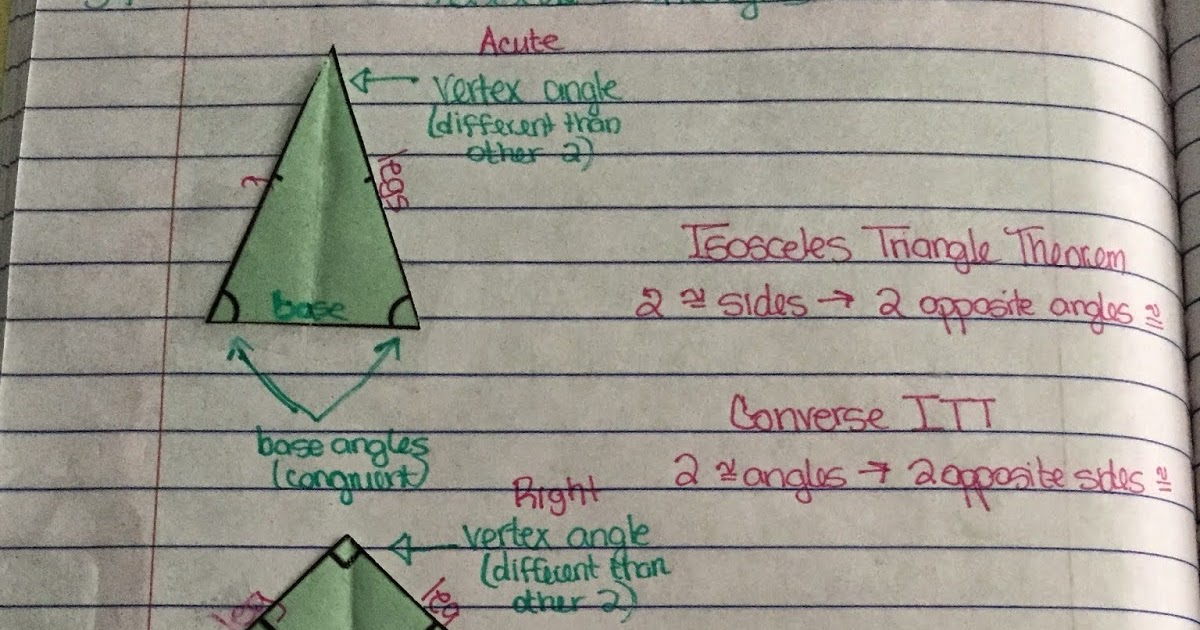 Acute
vertex angle
(different than
other 2)
legs
base
Isosceles Triangle Theorem
2 ≅ sides → 2 opposite angles ≅
Converse ITT
2 ≅ angles → 2 opposite sides ≅
base angles
(congruent)
Right
vertex angle
(different than
other 2)
leg
leg